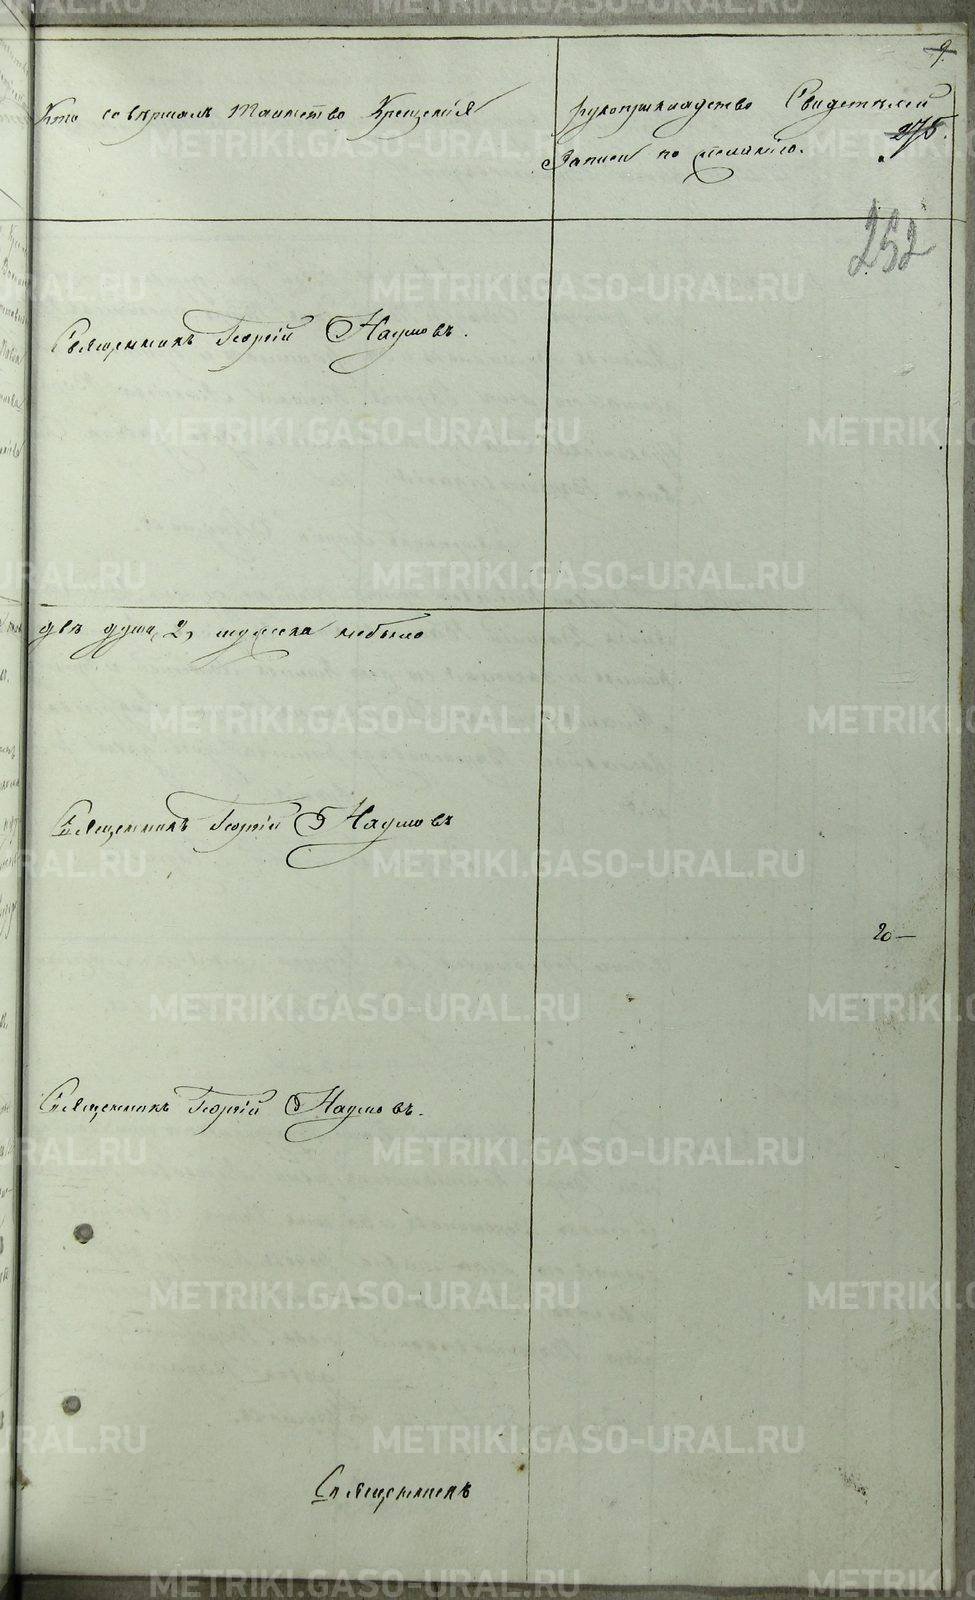 9.
Кто совершалъ Таинство Крещенія
рукоприкладство Свидетелей
275.
Записи по желанію.
252
Священникъ Георгій Наумовъ.
двѣ души, 2, мужеска небыло
Священникъ Георгій Наумовъ
20—
Священникъ Георгій Наумовъ.
Священникъ
METRIKI.GASO-URAL.RU